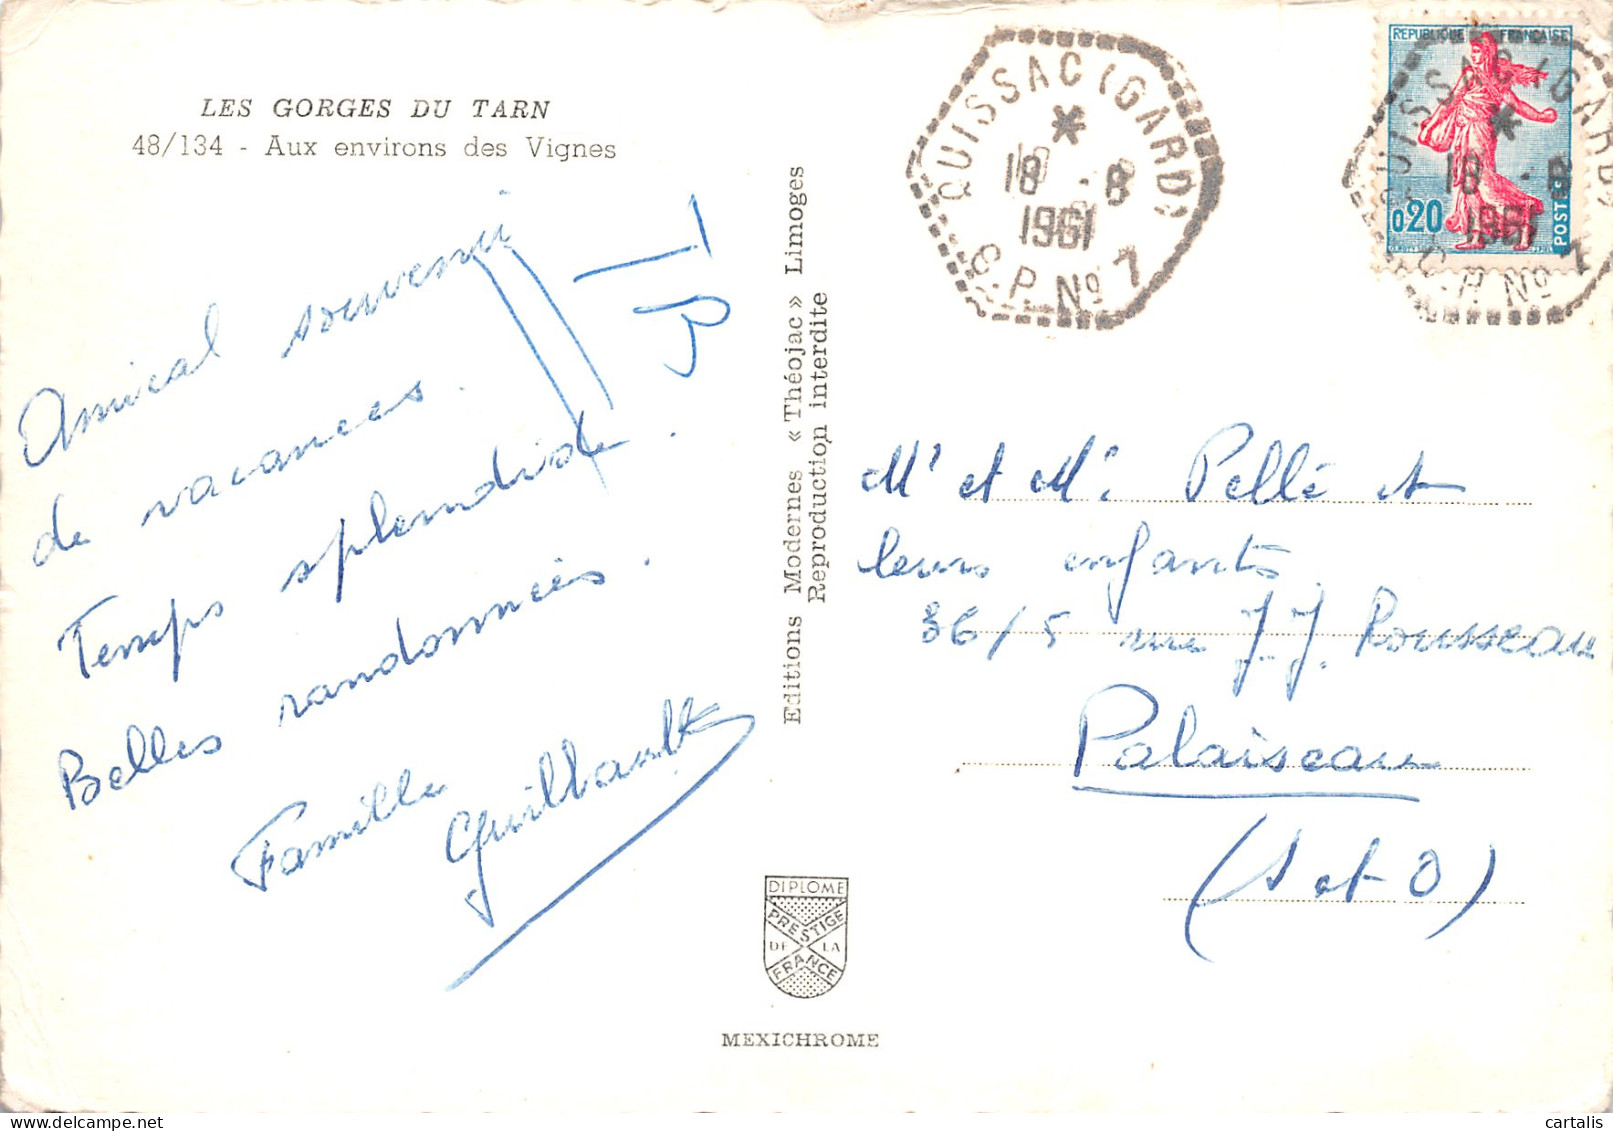 LES GORGES DU TARN
48/134 - Aux environs des Vignes
Amical souvenir
de vacances.
Temps splendide.
Belles randonnées.
Famille
Guilbault
Editions Modernes « Théojac » Limoges
Reproduction interdite
DIPLOME
PRESTIGE
DE LA
FRANCE
MEXICHROME
QUISSAC (GARD)
18 - 8
1961
C.P. No 7
REPUBLIQUE FRANCAISE
0,20
POSTES
QUISSAC (GARD)
18 - 8
1961
C.P. No 7
Mr et Me Pellé et
leurs enfants.
36/5 rue J.J. Rousseau
Palaiseau
(S et O)
cartalis